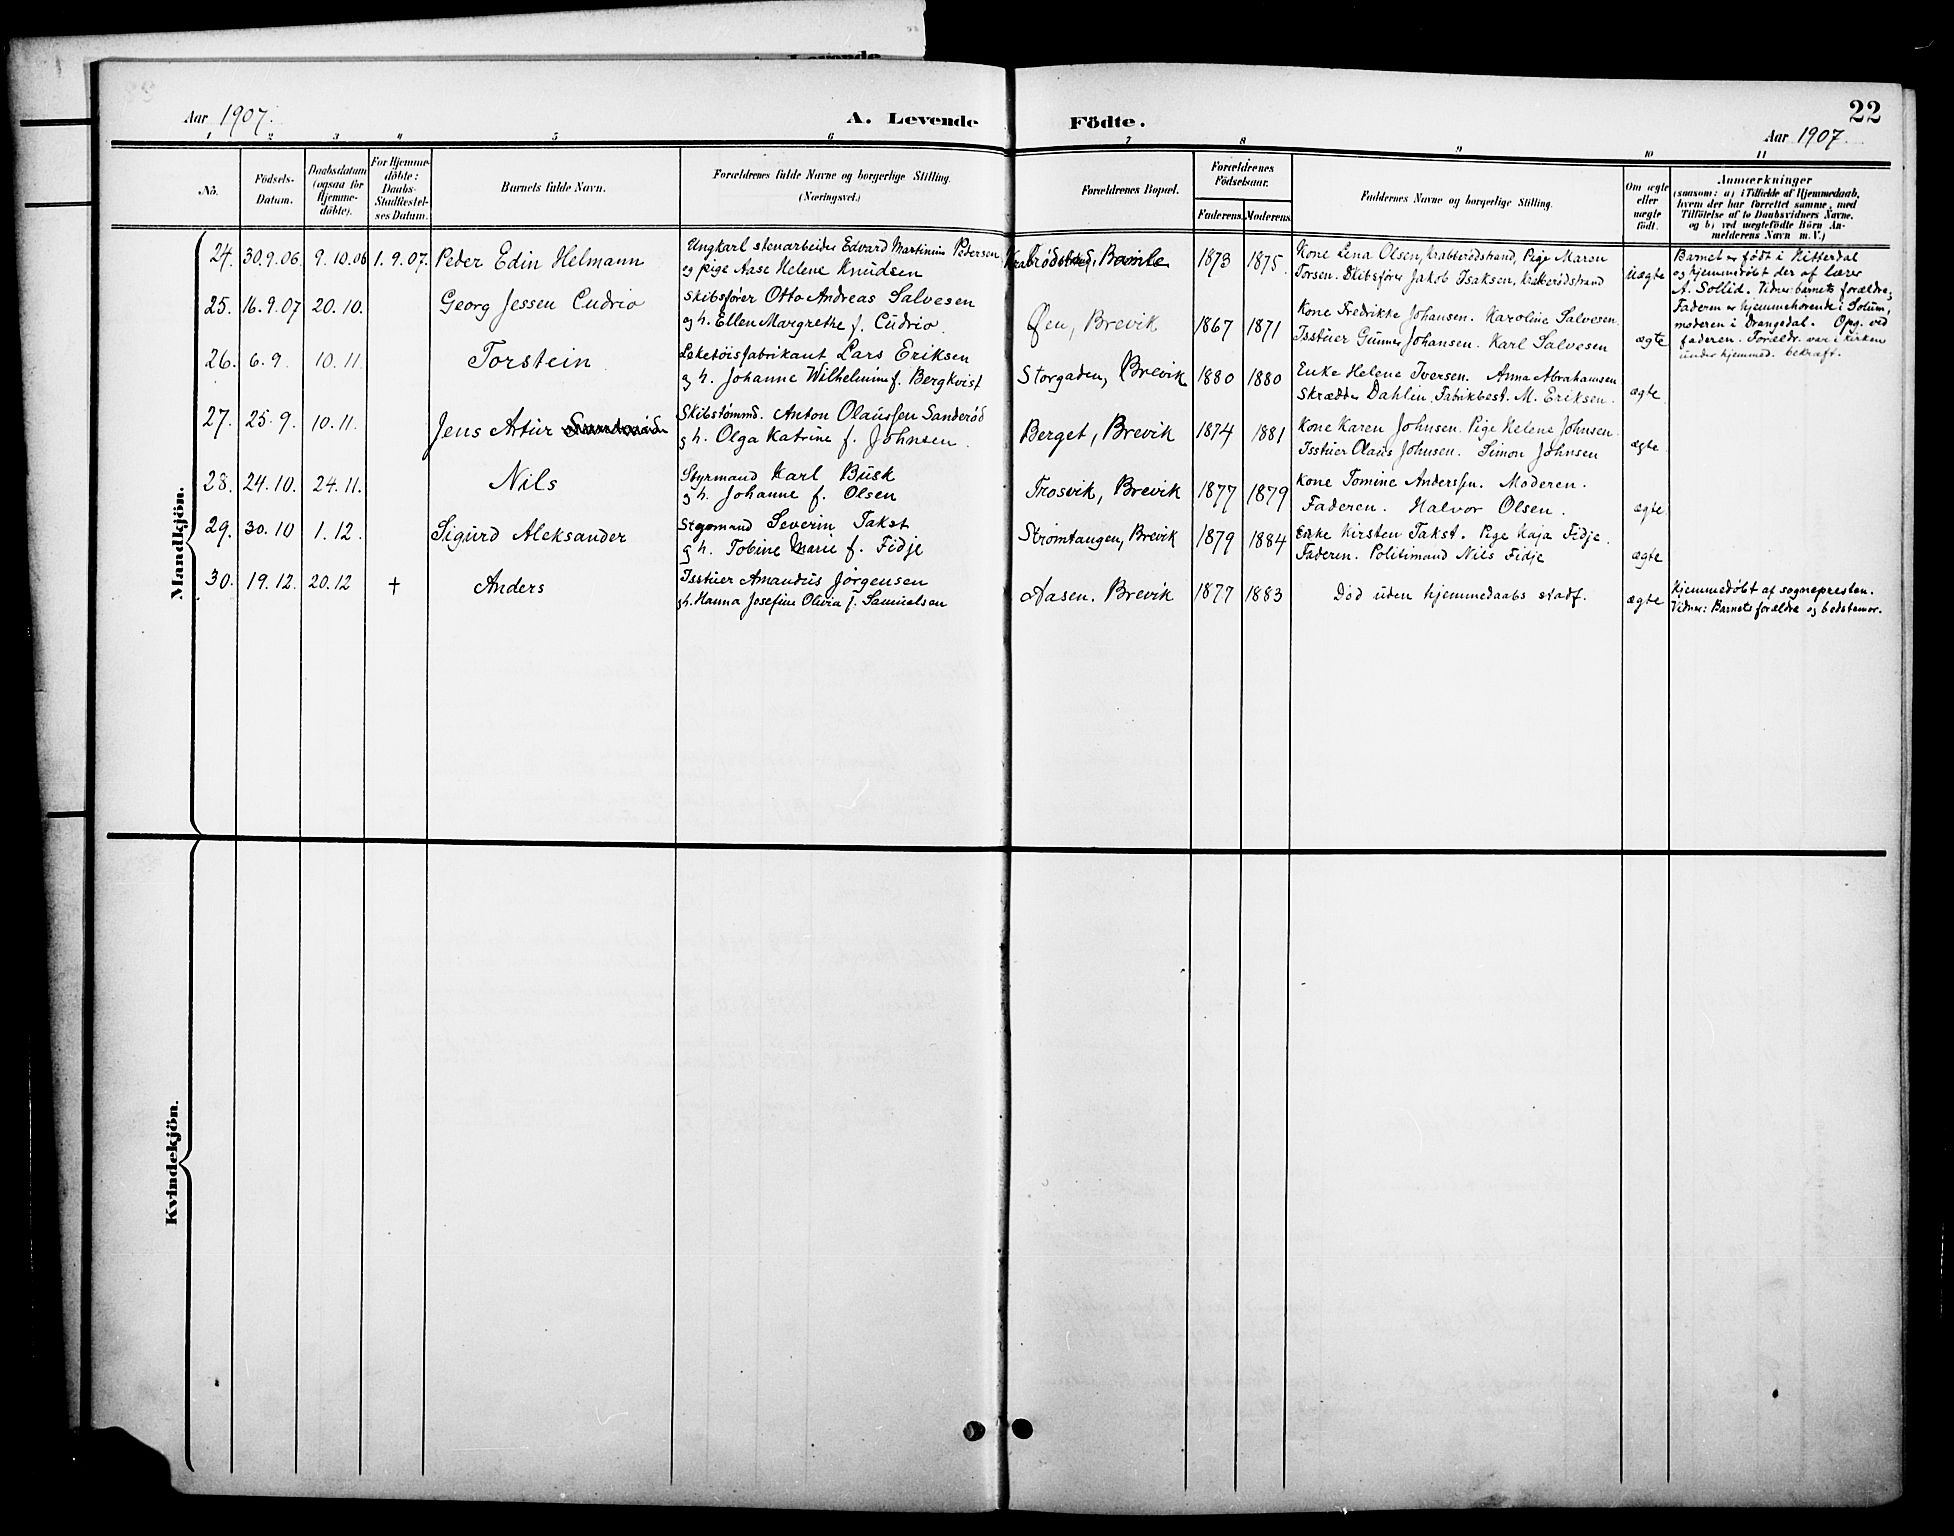 Levende
Aar 1907.
A. Levende Födte.
22
Aar 1907.
1 2 3 4 5 6 7 8 9 10 11
No.
Födsels-Datum.
Daabsdatum (ogsaa for Hjemme-döbte).
For Hjemme-döbte: Daabs-Stadfæstel-ses Datum.
Barnets fulde Navn.
Forældrenes fulde Navne og borgerlige Stilling. (Næringsvei.)
Forældrenes Bopæl.
Forældrenes Födselsaar.
Faderens. Moderens.
Faddernes Navne og borgerlige Stilling.
Om ægte eller uægte födt.
Anmærkninger
(saasom: a) i Tilfælde af Hjemmedaab,
hvem der har forrettet samme, med
Tilföielse af to Daabsvidners Navne,
og b) ved uægtefödte Börn An-
melderens Navn m. V.)
Mandkjön.
24. 30.9.06. 9.10.06 1.9.07. Peder Edin Helmann
Ungkarl stenarbeider Edvard Martinius Pedersen,
og pige Aase Helene Knudsen
Bamle 1873 1875.
Kone Lina Olsen, Krabberødstrand, Pige Maren
Torsen. Skibsfører Jakob Isaksen, Krabberødstrand
uægte
Barnet er født i Hitterdal
og hjemmedøbt der af lærer
A. Sollid. Vidner barnets forældre;
Faderen er hjemmehørende i Solum,
moderen i Drangedal. Opg. ved
faderen. Forældr. var i kirken
under hjemmed. bekræft.
25. 16.9.07 20.10. Georg Jessen Cudrio
Skibsfører Otto Andreas Salvesen
og h. Ellen Margrethe f. Cudrio.
Øen, Brevik 1867 1871
Kone Fredrikke Johansen. Karoline Salvesen.
Isstuer Gunner Johansen. Karl Salvesen
ægte
26. 6.9. 10.11 Torstein
Leketøisfabrikant Lars Eriksen
og h. Johanne Wilhelmine f. Bergkvist
Storgaden, Brevik 1880 1880
Enke Helene Iversen. Anna Abrahamsen
Skrædder Dahlin. Fabrikbest. M. Eriksen.
ægte.
27. 25.9. 10.11. Jens Artur
Skibstømmd. Anton Olaussen Sanderød
og h. Olga Katrine f. Johnsen.
Berget, Brevik 1874 1881
Kone Karen Johnsen. Pige Helene Johnsen.
Isstuer Olaus Johnsen. Simon Johnsen
ægte
28. 24.10. 24.11. Nils
Styrmand Karl Busk
og h. Johanne f. Olsen
Trosvik, Brevik 1877 1879
Kone Tomine Anderssen. Moderen.
Faderen. Halvor Olsen.
ægte
29. 30.10 1.12. Sigurd Aleksander
Styrmand Severin Takst
og h. Tobine Marie f. Fidje
Strømtangen, Brevik 1879 1884
Enke Kirsten Takst. Pige Kaja Fidje.
Faderen. Politimand Nils Fidje
ægte
30. 19.12. 20.12 † Anders
Isstuer Amandus Jørgensen
og h. Hanna Josefine Olivia f. Samuelsen
Aasen. Brevik 1877 1883
Død uden hjemmedaabs stadf.
ægte
Hjemmedøbt af sognepresten.
Vidner: Barnets forældre og bedstemor.
Kvindekjön.